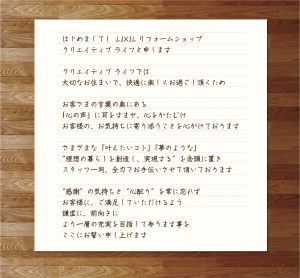 はじめまして！ LIXIL リフォームショップ
クリエイティブ ライフと申します
クリエイティブ ライフでは
大切なお住まいで、快適に楽しくお過ごし頂くため
お客さまの言葉の奥にある
「心の声」に耳をすませ、心をかたむけ
お客様の、お気持ちに寄り添うことを心がけております
さまざまな『叶えたいコト』『夢のような』
“理想の暮らしを創造し、実現する”を念頭に置き
スタッフ一同、全力でお手伝いさせて頂いております
“感謝”の気持ちと“心配り”を常に忘れず
お客様に、ご満足していただけるよう
謙虚に、前向きに
より一層の充実を目指して参ります事を
ここにお誓い申し上げます